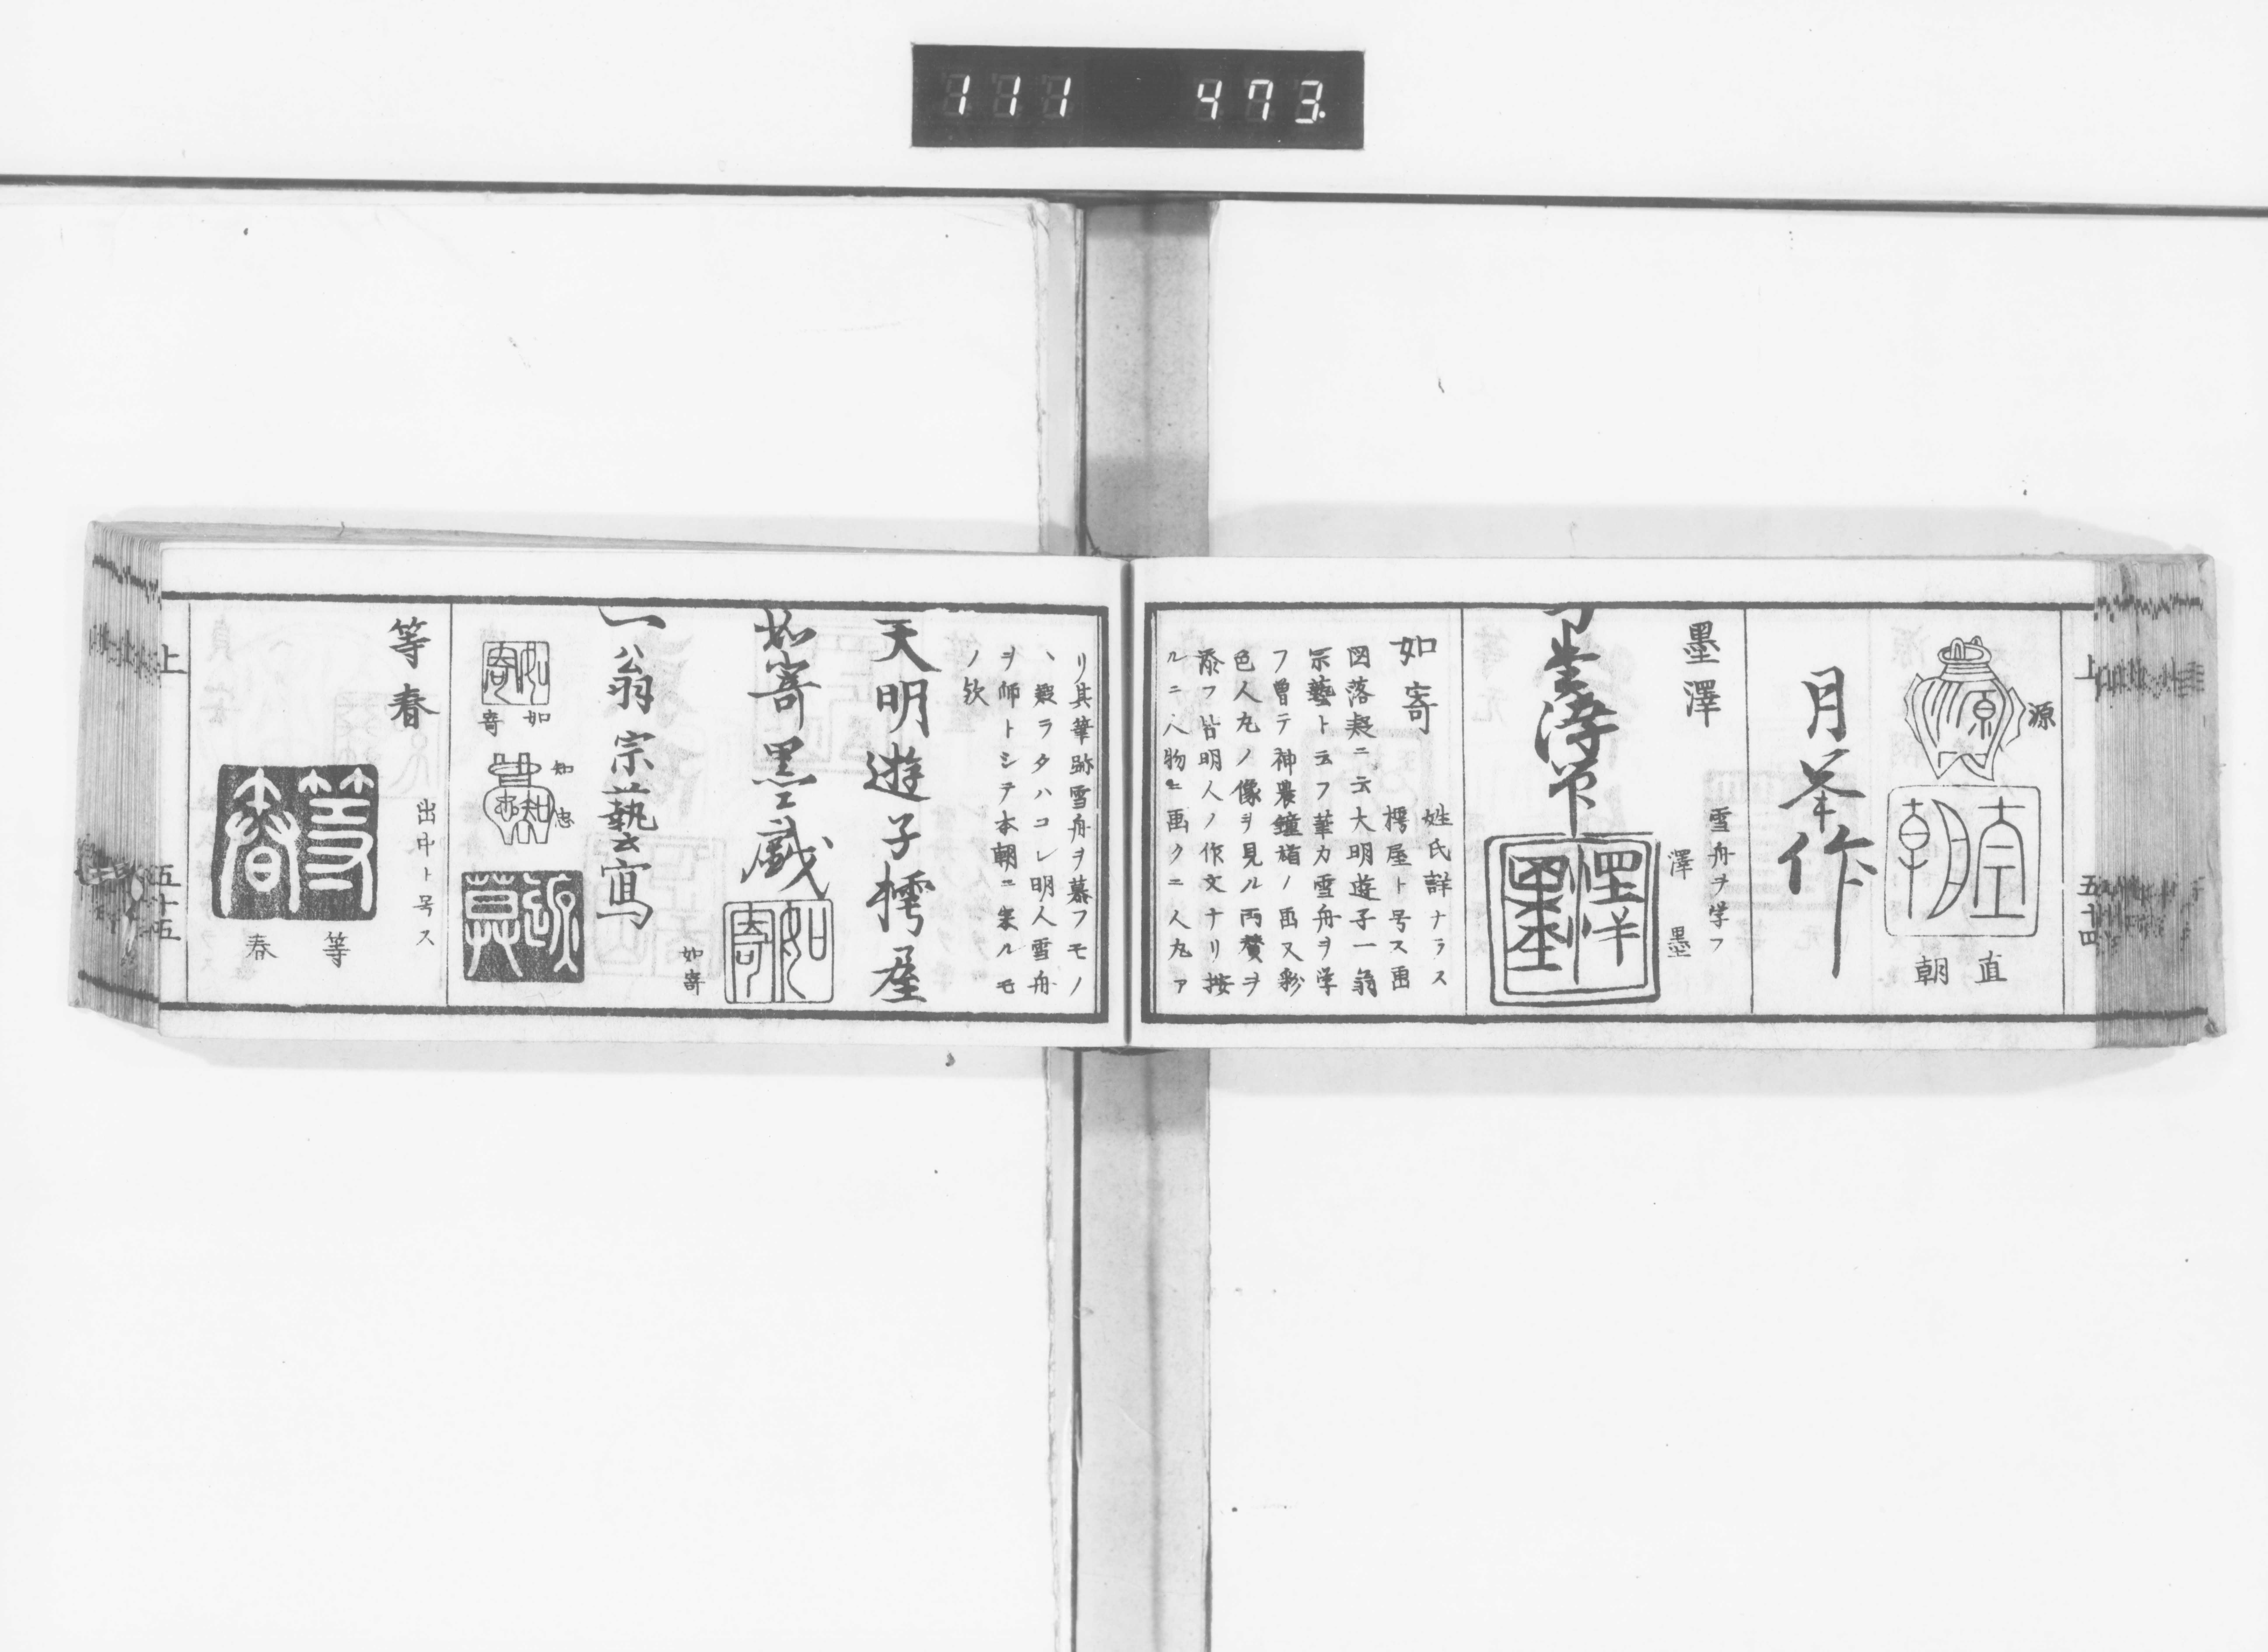 111 473.
上
五十四
源
直
朝
月峯作
墨澤
雪舟ヲ学フ
澤
墨
如寄
姓氏詳ナラス
樗屋ト号ス画
図落款ニ云大明遊子一翁
宗藝ト云フ筆力雪舟ヲ学
フ曽テ神農鐘馗ノ画又彩
色人丸ノ像ヲ見ル両賛ヲ
添フ皆明人ノ作文ナリ按
ルニ人物ヲ画クニ人丸ア
リ其筆跡雪舟ヲ慕フモノ
ヽ類ラタハコレ明人雪舟
ヲ師トシテ本朝ニ来ルモ
ノ欤
天明遊子樗屋
如寄墨戯
如寄
一翁宗藝寫
如
寄
知
忠
等春
出中ト号ス
等
春
上
五十五